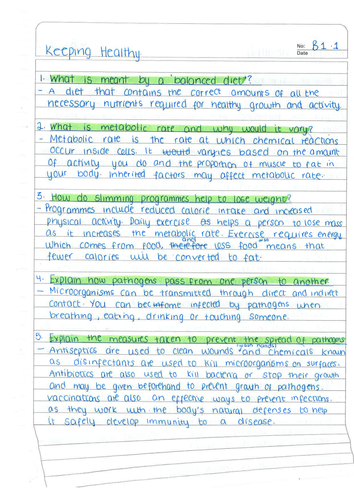 Keeping Healthy
No: B1.1
Date
1. What is meant by a 'balanced diet'?
- A diet that contains the correct amounts of all the
necessary nutrients required for healthy growth and activity.
2. What is metabolic rate and why would it vary?
- Metabolic rate is the rate at which chemical reactions
occur inside cells. It would varyies based on the amount
of activity you do and the proportion of muscle to fat in
your body. Inherited factors may affect metabolic rate.
3. How do slimming programmes help to lose weight?
- Programmes include reduced calorie intake and increased
physical activity. Daily exercise as helps a person to lose mass
as it increases the metabolic rate. Exercise requires energy
which comes from food, therefore and less food means that
fewer calories will be converted to fat.
4. Explain how pathogens pass from one person to another
- Microorganisms can be transmitted through direct and indirect
contact. You can become infected by pathogens when
breathing, eating, drinking or touching someone.
5. Explain the measures taken to prevent the spread of pathogens
- Antiseptics are used to clean wounds (your hands) and chemicals known
as disinfectants are used to kill microorganisms on surfaces.
Antibiotics are also used to kill bacteria or stop their growth
and may be given beforehand to prevent growth of pathogens.
Vaccinations are also an effective ways to prevent infections.
as they work with the body's natural defenses to help
it safely develop immunity to a disease.